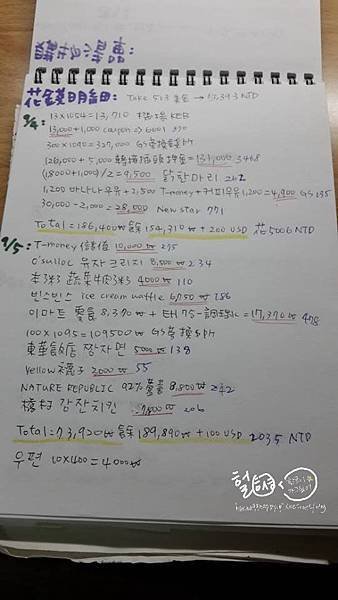 花錢明細: Take 513 美金 → 15,393 NTD
9/4: 13×1054=13,710 機場 KEB
13,000+1,000 coupon → 6001 370
300×1090=327,000 GS換錢所
126,000+5,000 轉接插頭押金=131,000 3468
(18,000+1,000)/2=9,500 닭한마리 262
1,200 바나나우유+2,500 T-money+커피우유 1,200=4,900 GS 135
30,000-2,000=28,000 New star 771
Total=186,400₩ 餘 154,310₩+200 USD 花5006 NTD
9/5: T-money 儲值 10,000₩ 275
O'sulloc 유자크리지 8,500₩ 234
本粥 蔬菜牛肉粥 4000₩ 110
빈스빈스 ice cream waffle 6750₩ 186
이마트 零食 8,370₩+ =17,370₩ 478
100×1095=109500₩ GS換錢所
東華飯店 짱자면 5000₩ 138
Yellow襪子 2000₩ 55
NATURE REPUBLIC 92%蘆薈 8,800₩ 242
橋村 감잔치킨 7500₩ 206
Total=73,920₩ 餘 189,890₩+100 USD 2035 NTD
우편 10×400=4000₩